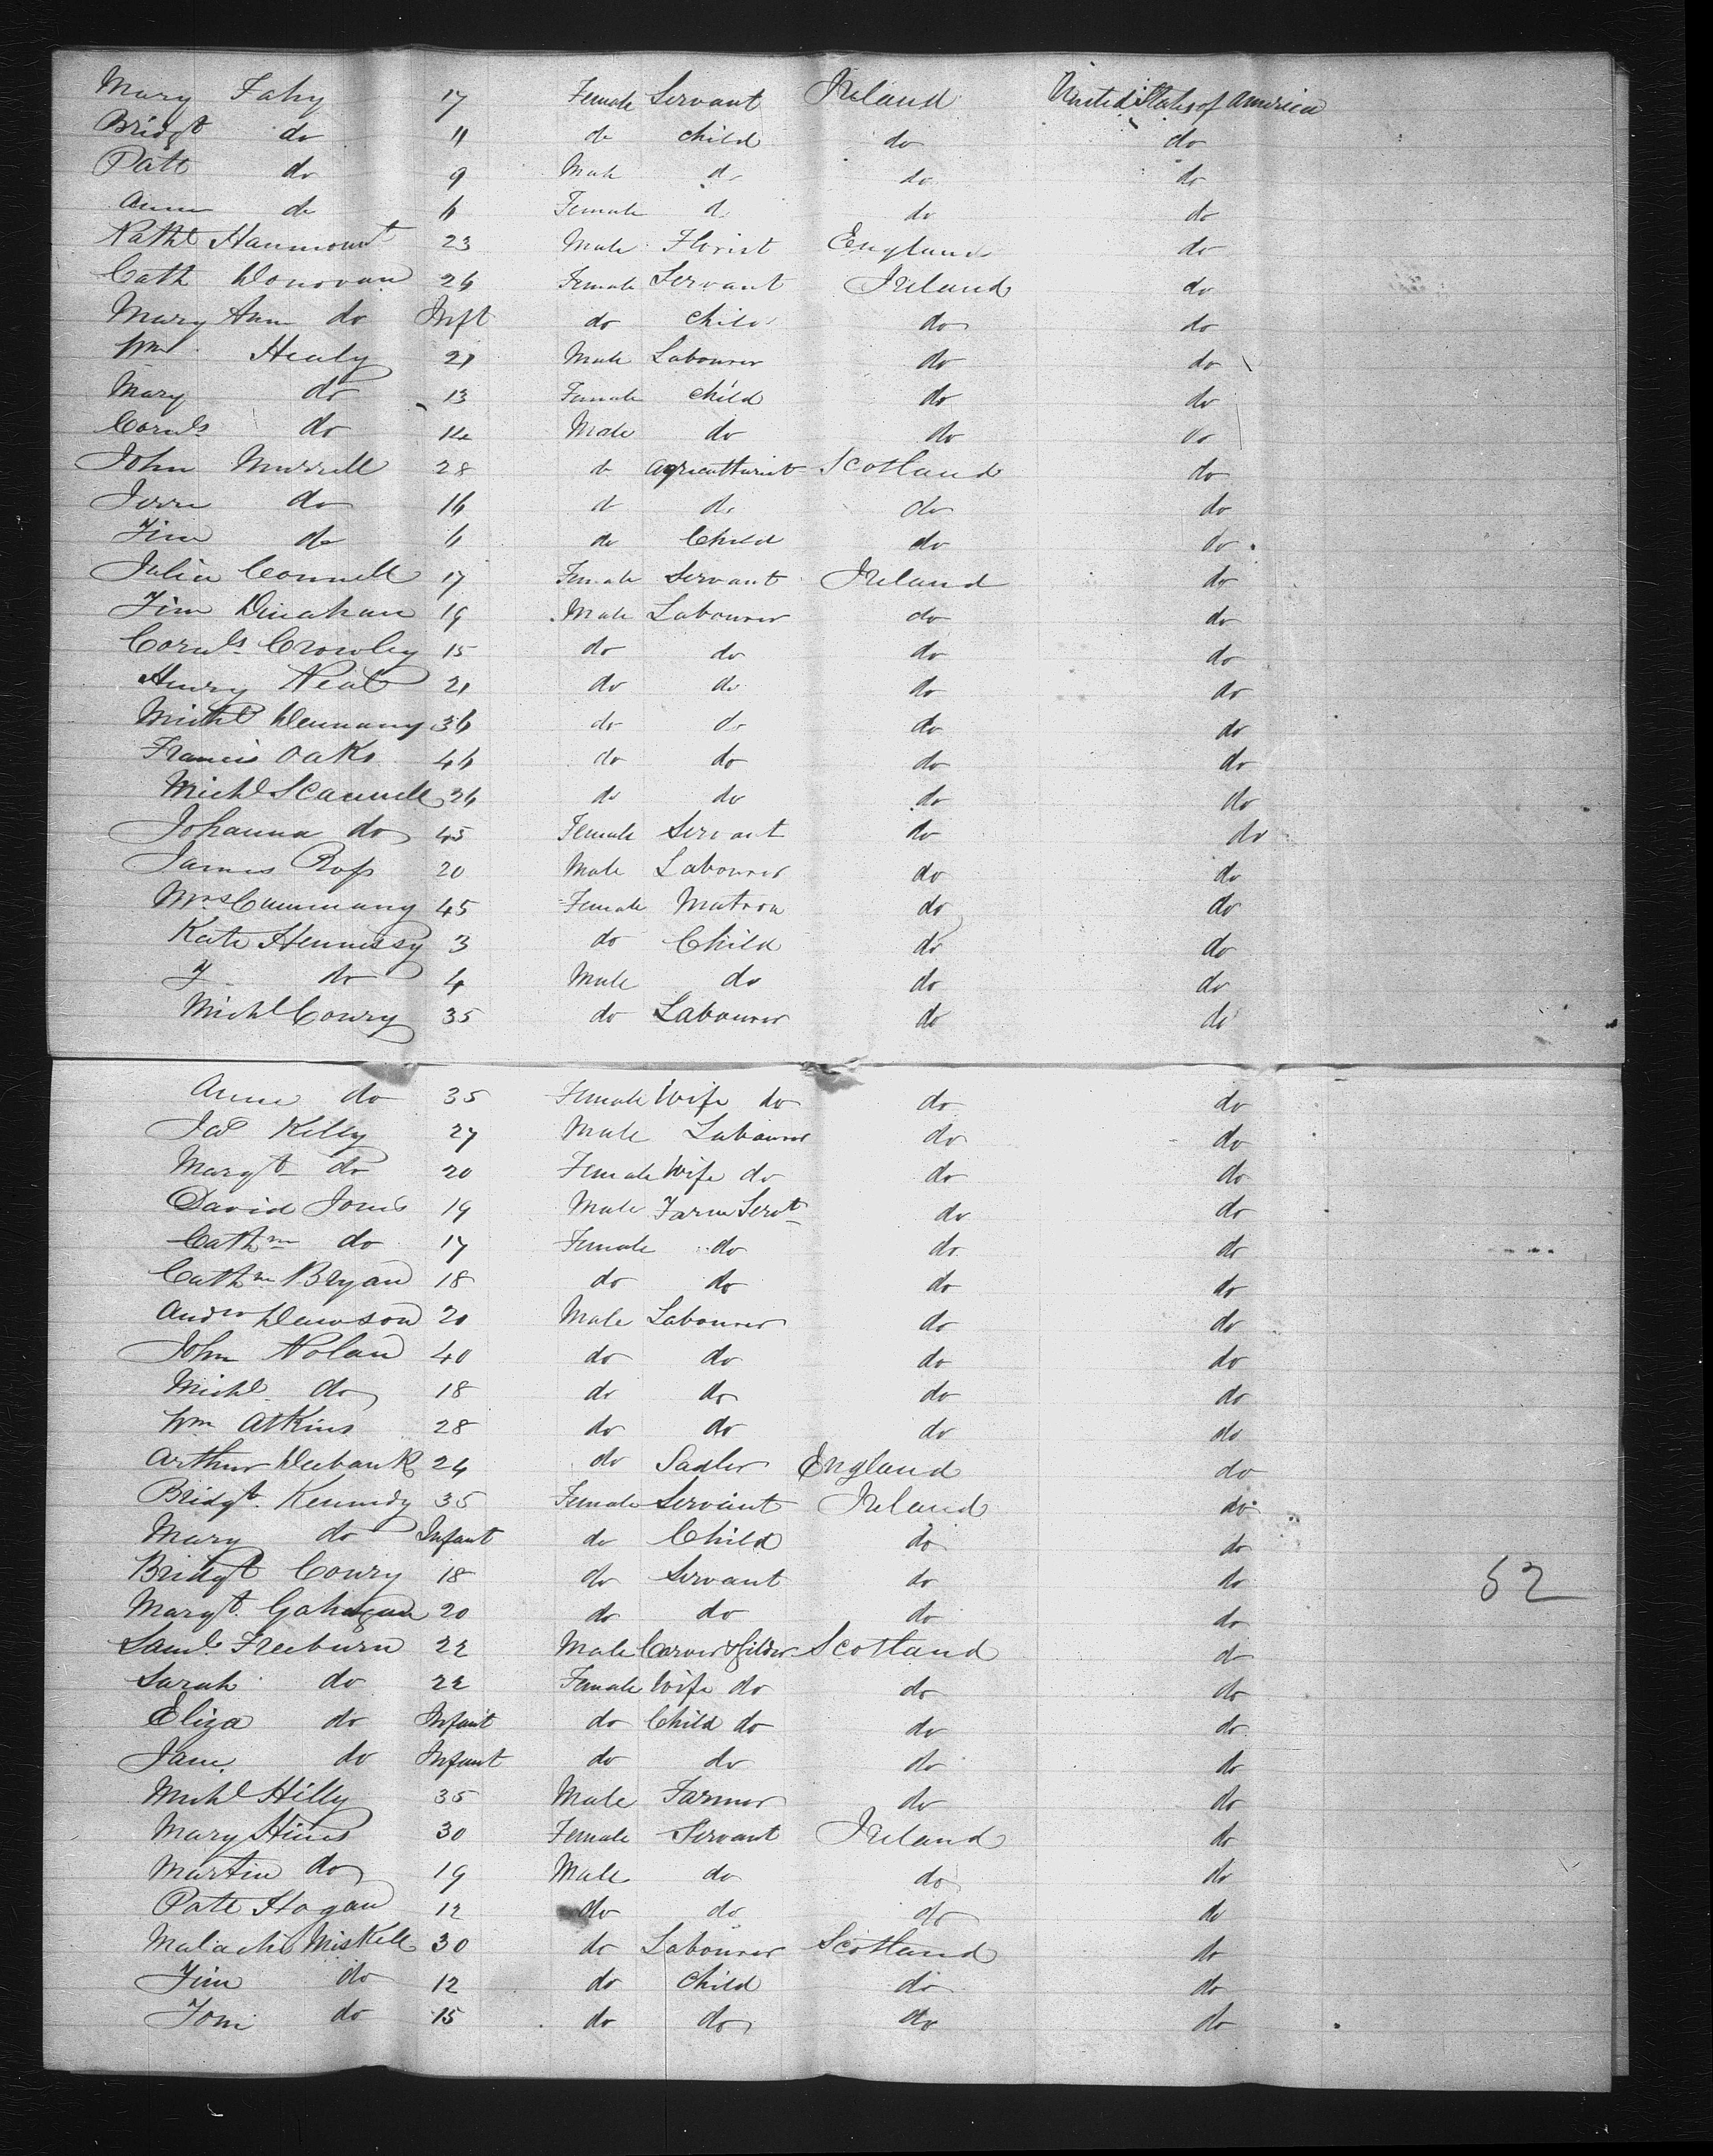 Mary Fahy 17 Female Servant Ireland United States of America
Bridgt do 11 do child do do
Patt do 9 Male do do do
Anne do 6 Female do do do
Nathl Hammount 23 Male Florist England do
Cath Donovan 26 Female Servant Ireland do
Mary Ann do Inft do child do do
Wm Healy 21 Male Labourer do do
Mary do 13 Female child do do
Cornls do 12 Male do do do
John Murrell 28 do agriculturist Scotland do
Jerre do 16 do do do do
Jim do 6 do Child do do
Julia Connell 17 Female Servant Ireland do
Jim Dinahan 19 Male Labourer do do
Cornls Crowley 15 do do do do
Henry Neal 21 do do do do
Michl Dennany 36 do do do do
Francis Oaks 46 do do do do
Michl Scannell 26 do do do do
Johanna do 45 Female Servant do do
James Ross 20 Male Labourer do do
Mrs Cummany 45 Female Matron do do
Kate Hennessy 3 do Child do do
J do 4 Male do do do
Michl Conry 35 do Labourer do do
Anne do 35 Female Wife do do do
Jas Kelly 27 Male Labourer do do
Margt do 20 Female Wife do do do
David Jones 19 Male Farm Servt do do
Cathne do 17 Female do do do
Cathne Bryan 18 do do do do
Andw Dawson 20 Male Labourer do do
John Nolan 40 do do do do
Michl do 18 do do do do
Wm Atkins 28 do do do do
Arthur Deebank 24 do Sadler England do
Bridgt Kennedy 35 Female Servant Ireland do
Mary do Infant do Child do do
Bridgt Conry 18 do Servant do do
Margt Gahagan 20 do do do do
52
Saml Freeburn 22 Male Carver & Gilder Scotland do
Sarah do 22 Female Wife do do do
Eliza do Infant do Child do do do
Jane do Infant do do do do
Michl Hilly 35 Male Farmer do do
Mary Hines 30 Female Servant Ireland do
Martin do 19 Male do do do
Patt Hogan 12 do do do do
Malachi Miskell 30 do Labourer Scotland do
Jim do 12 do child do do
Tom do 15 do do do do